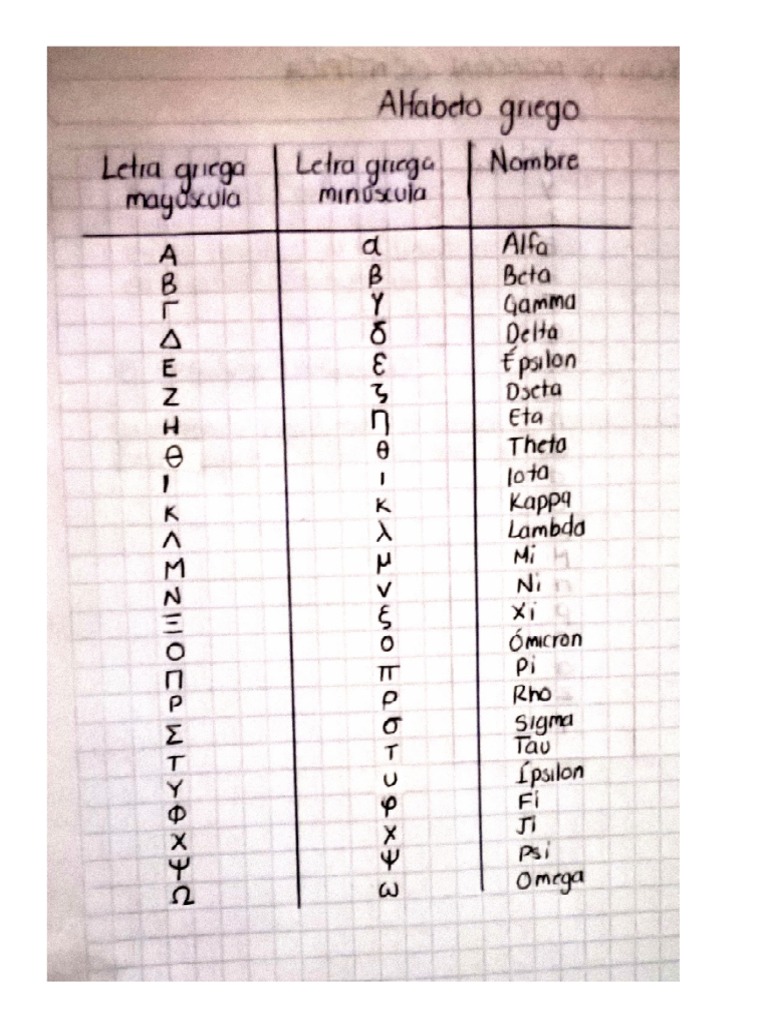 Alfabeto griego
Letra griega mayúscula | Letra griega minúscula | Nombre
Α α Alfa
Β β Beta
Γ γ Gamma
Δ δ Delta
Ε ε Épsilon
Ζ ζ Dseta
Η η Eta
Θ θ Theta
Ι ι Iota
Κ κ Kappa
Λ λ Lambda
Μ μ Mi
Ν ν Ni
Ξ ξ Xi
Ο ο Ómicron
Π π Pi
Ρ ρ Rho
Σ σ Sigma
Τ τ Tau
Υ υ Ípsilon
Φ φ Fi
Χ χ Ji
Ψ ψ Psi
Ω ω Omega